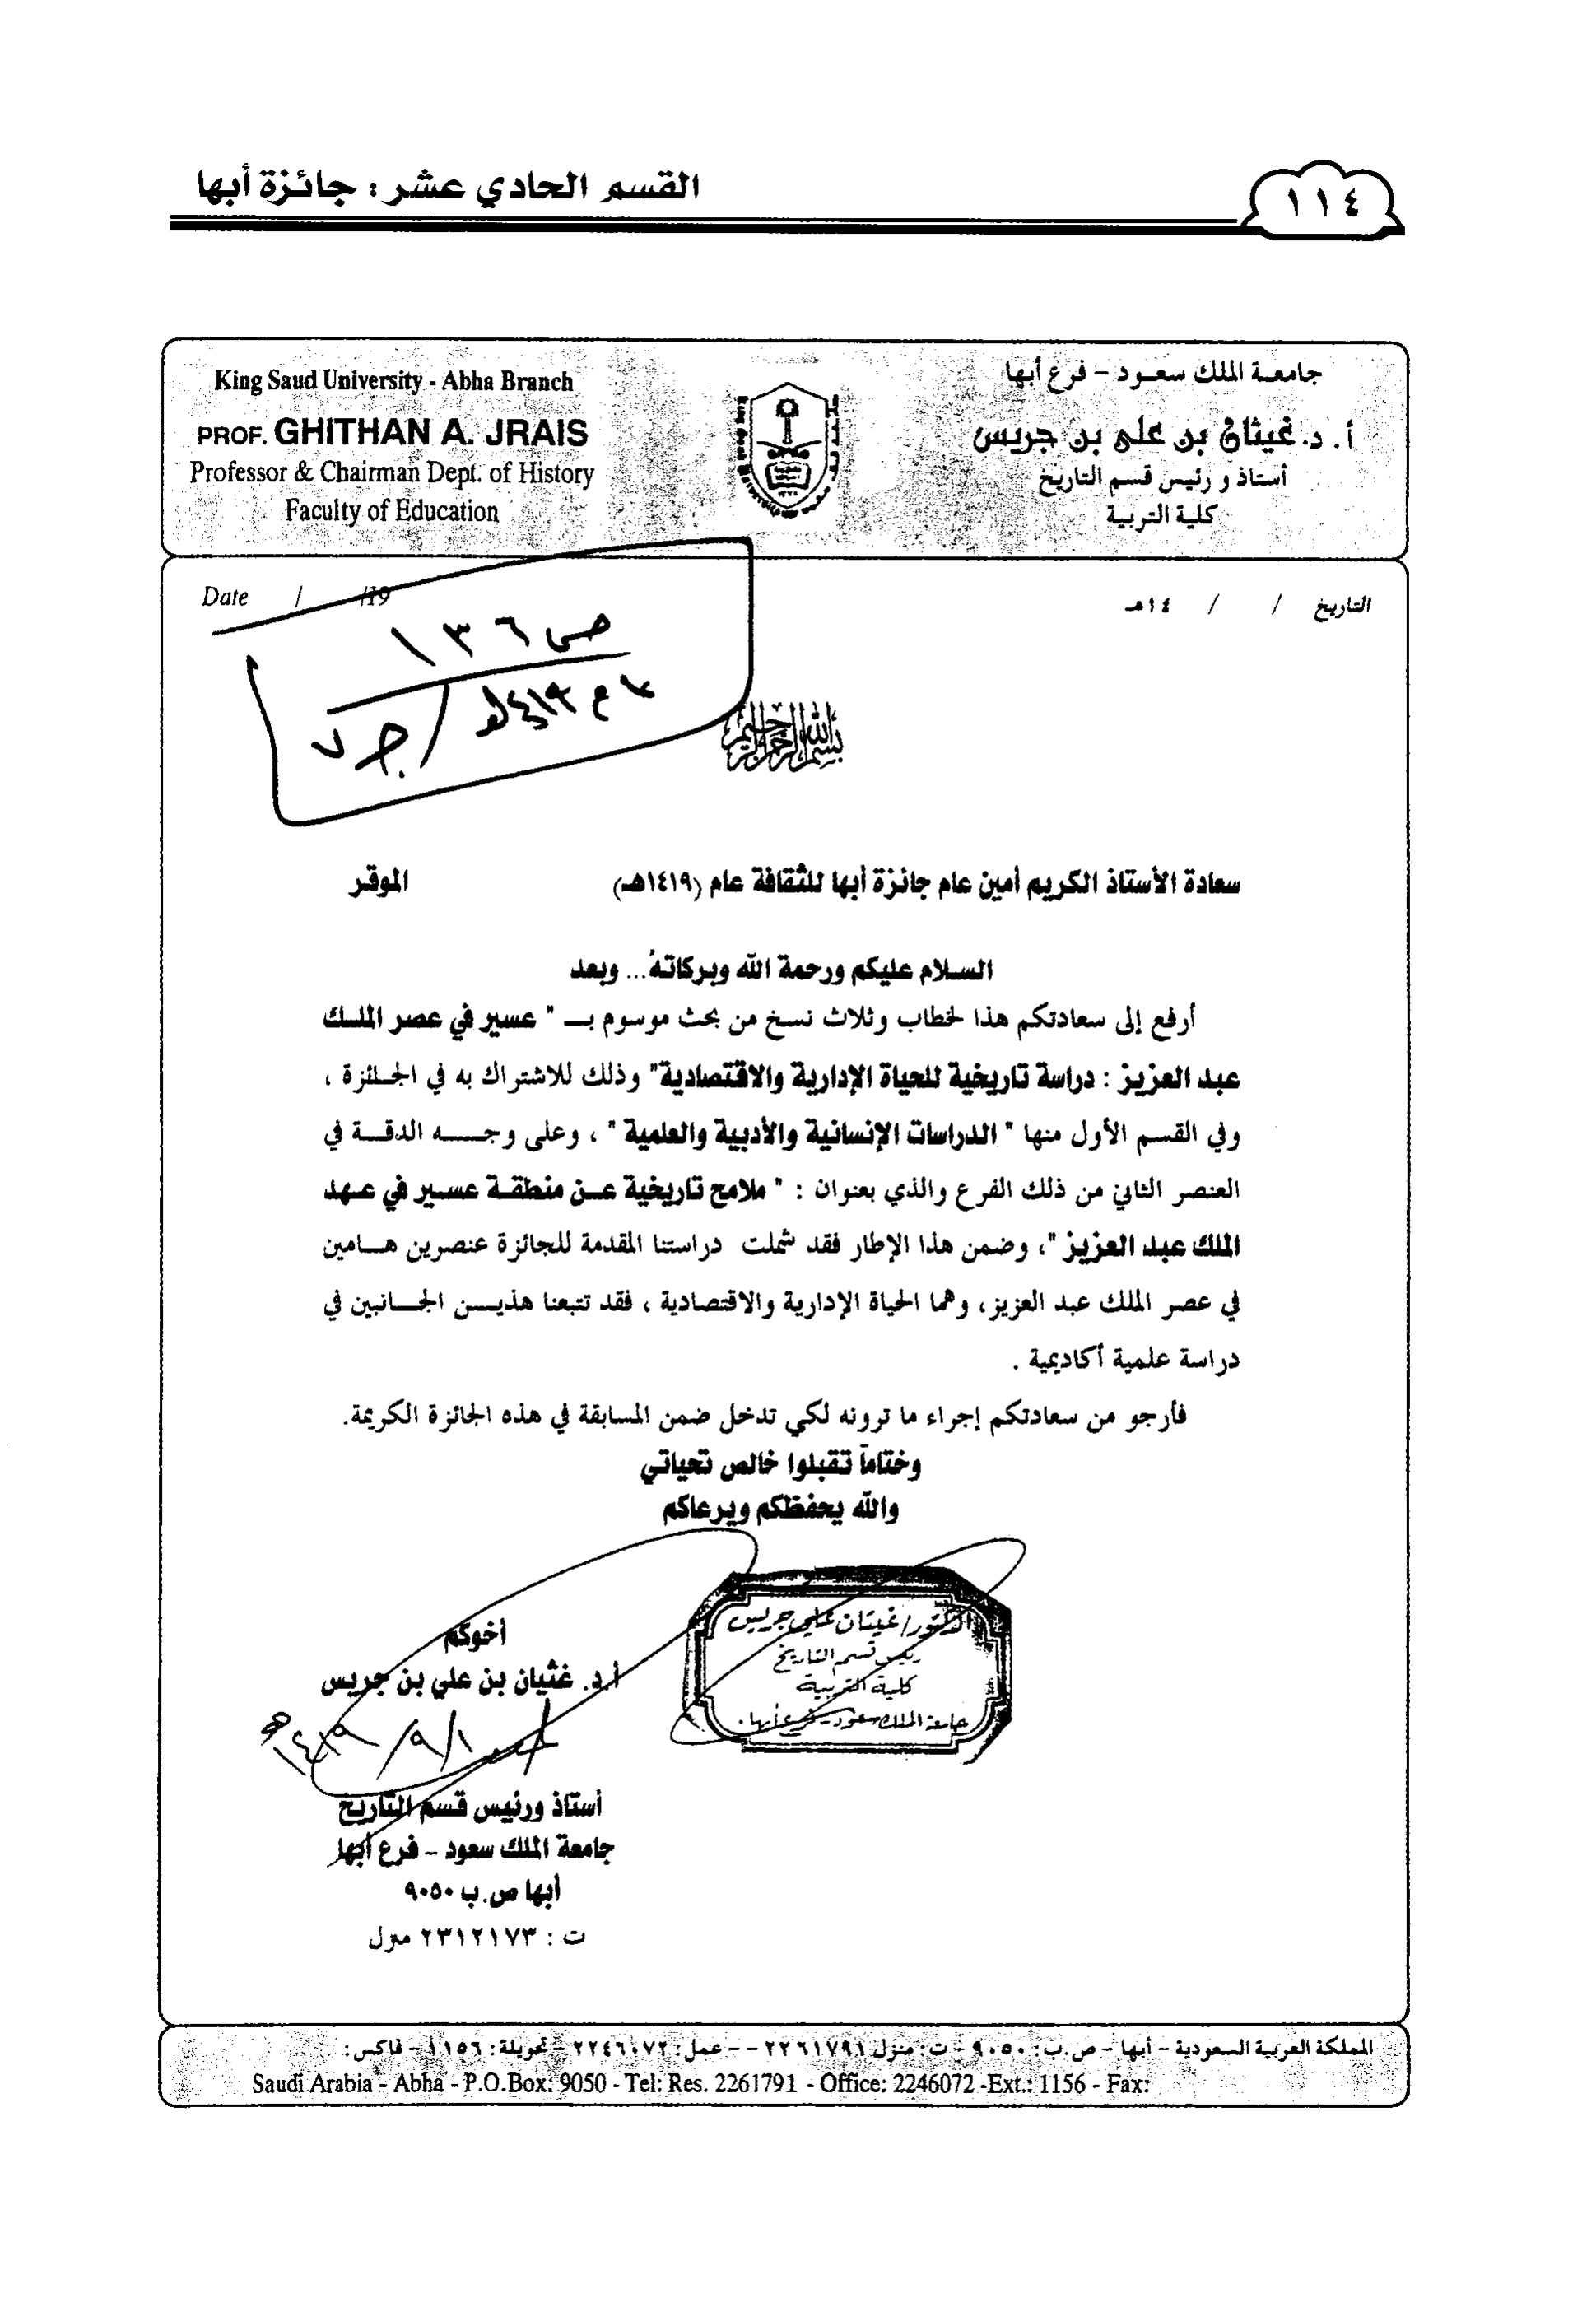 القسم الحادي عشر : جائزة أبها
١١٤
جامعة الملك سعود - فرع أبها
أ. د. غيثان بن على بن جريس
أستاذ و رئيس قسم التاريخ
كلية التربية
King Saud University - Abha Branch
PROF. GHITHAN A. JRAIS
Professor & Chairman Dept. of History
Faculty of Education
التاريخ / / ١٤هـ
Date / /19
ص ١٣٦
١٤١٩هـ / جـ ٧
بسم الله الرحمن الرحيم
سعادة الأستاذ الكريم أمين عام جائزة أبها للثقافة عام (١٤١٩هـ) الموقر
السلام عليكم ورحمة الله وبركاته... وبعد
أرفع إلى سعادتكم هذا لخطاب وثلاث نسخ من بحث موسوم بـ " عسير في عصر الملك
عبد العزيز : دراسة تاريخية للحياة الإدارية والاقتصادية" وذلك للاشتراك به في الجائزة ،
وفي القسم الأول منها " الدراسات الإنسانية والأدبية والعلمية " ، وعلى وجه الدقة في
العنصر الثاني من ذلك الفرع والذي بعنوان : " ملامح تاريخية عن منطقة عسير في عهد
الملك عبد العزيز "، وضمن هذا الإطار فقد شملت دراستنا المقدمة للجائزة عنصرين هامين
في عصر الملك عبد العزيز، وهما الحياة الإدارية والاقتصادية ، فقد تتبعنا هذين الجانبين في
دراسة علمية أكاديمية .
فأرجو من سعادتكم إجراء ما ترونه لكي تدخل ضمن المسابقة في هذه الجائزة الكريمة.
وختاماً تقبلوا خالص تحياتي
والله يحفظكم ويرعاكم
الدكتور/ غيثان علي جريس
رئيس قسم التاريخ
كلية التربية
جامعة الملك سعود - فرع أبها.
أخوكم
أ.د. غثيان بن علي بن جريس
١/٩/١٤١٩هـ
أستاذ ورئيس قسم التاريخ
جامعة الملك سعود - فرع أبها
أبها ص.ب ٩٠٥٠
ت : ٢٣١٢١٧٣ منزل
المملكة العربية السعودية - أبها - ص.ب: ٩٠٥٠ - ت: منزل ٢٢٦١٧٩١ - - عمل: ٢٢٤٦٠٧٢ - تحويلة: ١١٥٦ - فاكس:
Saudi Arabia - Abha - P.O.Box: 9050 - Tel: Res. 2261791 - Office: 2246072 -Ext.: 1156 - Fax: